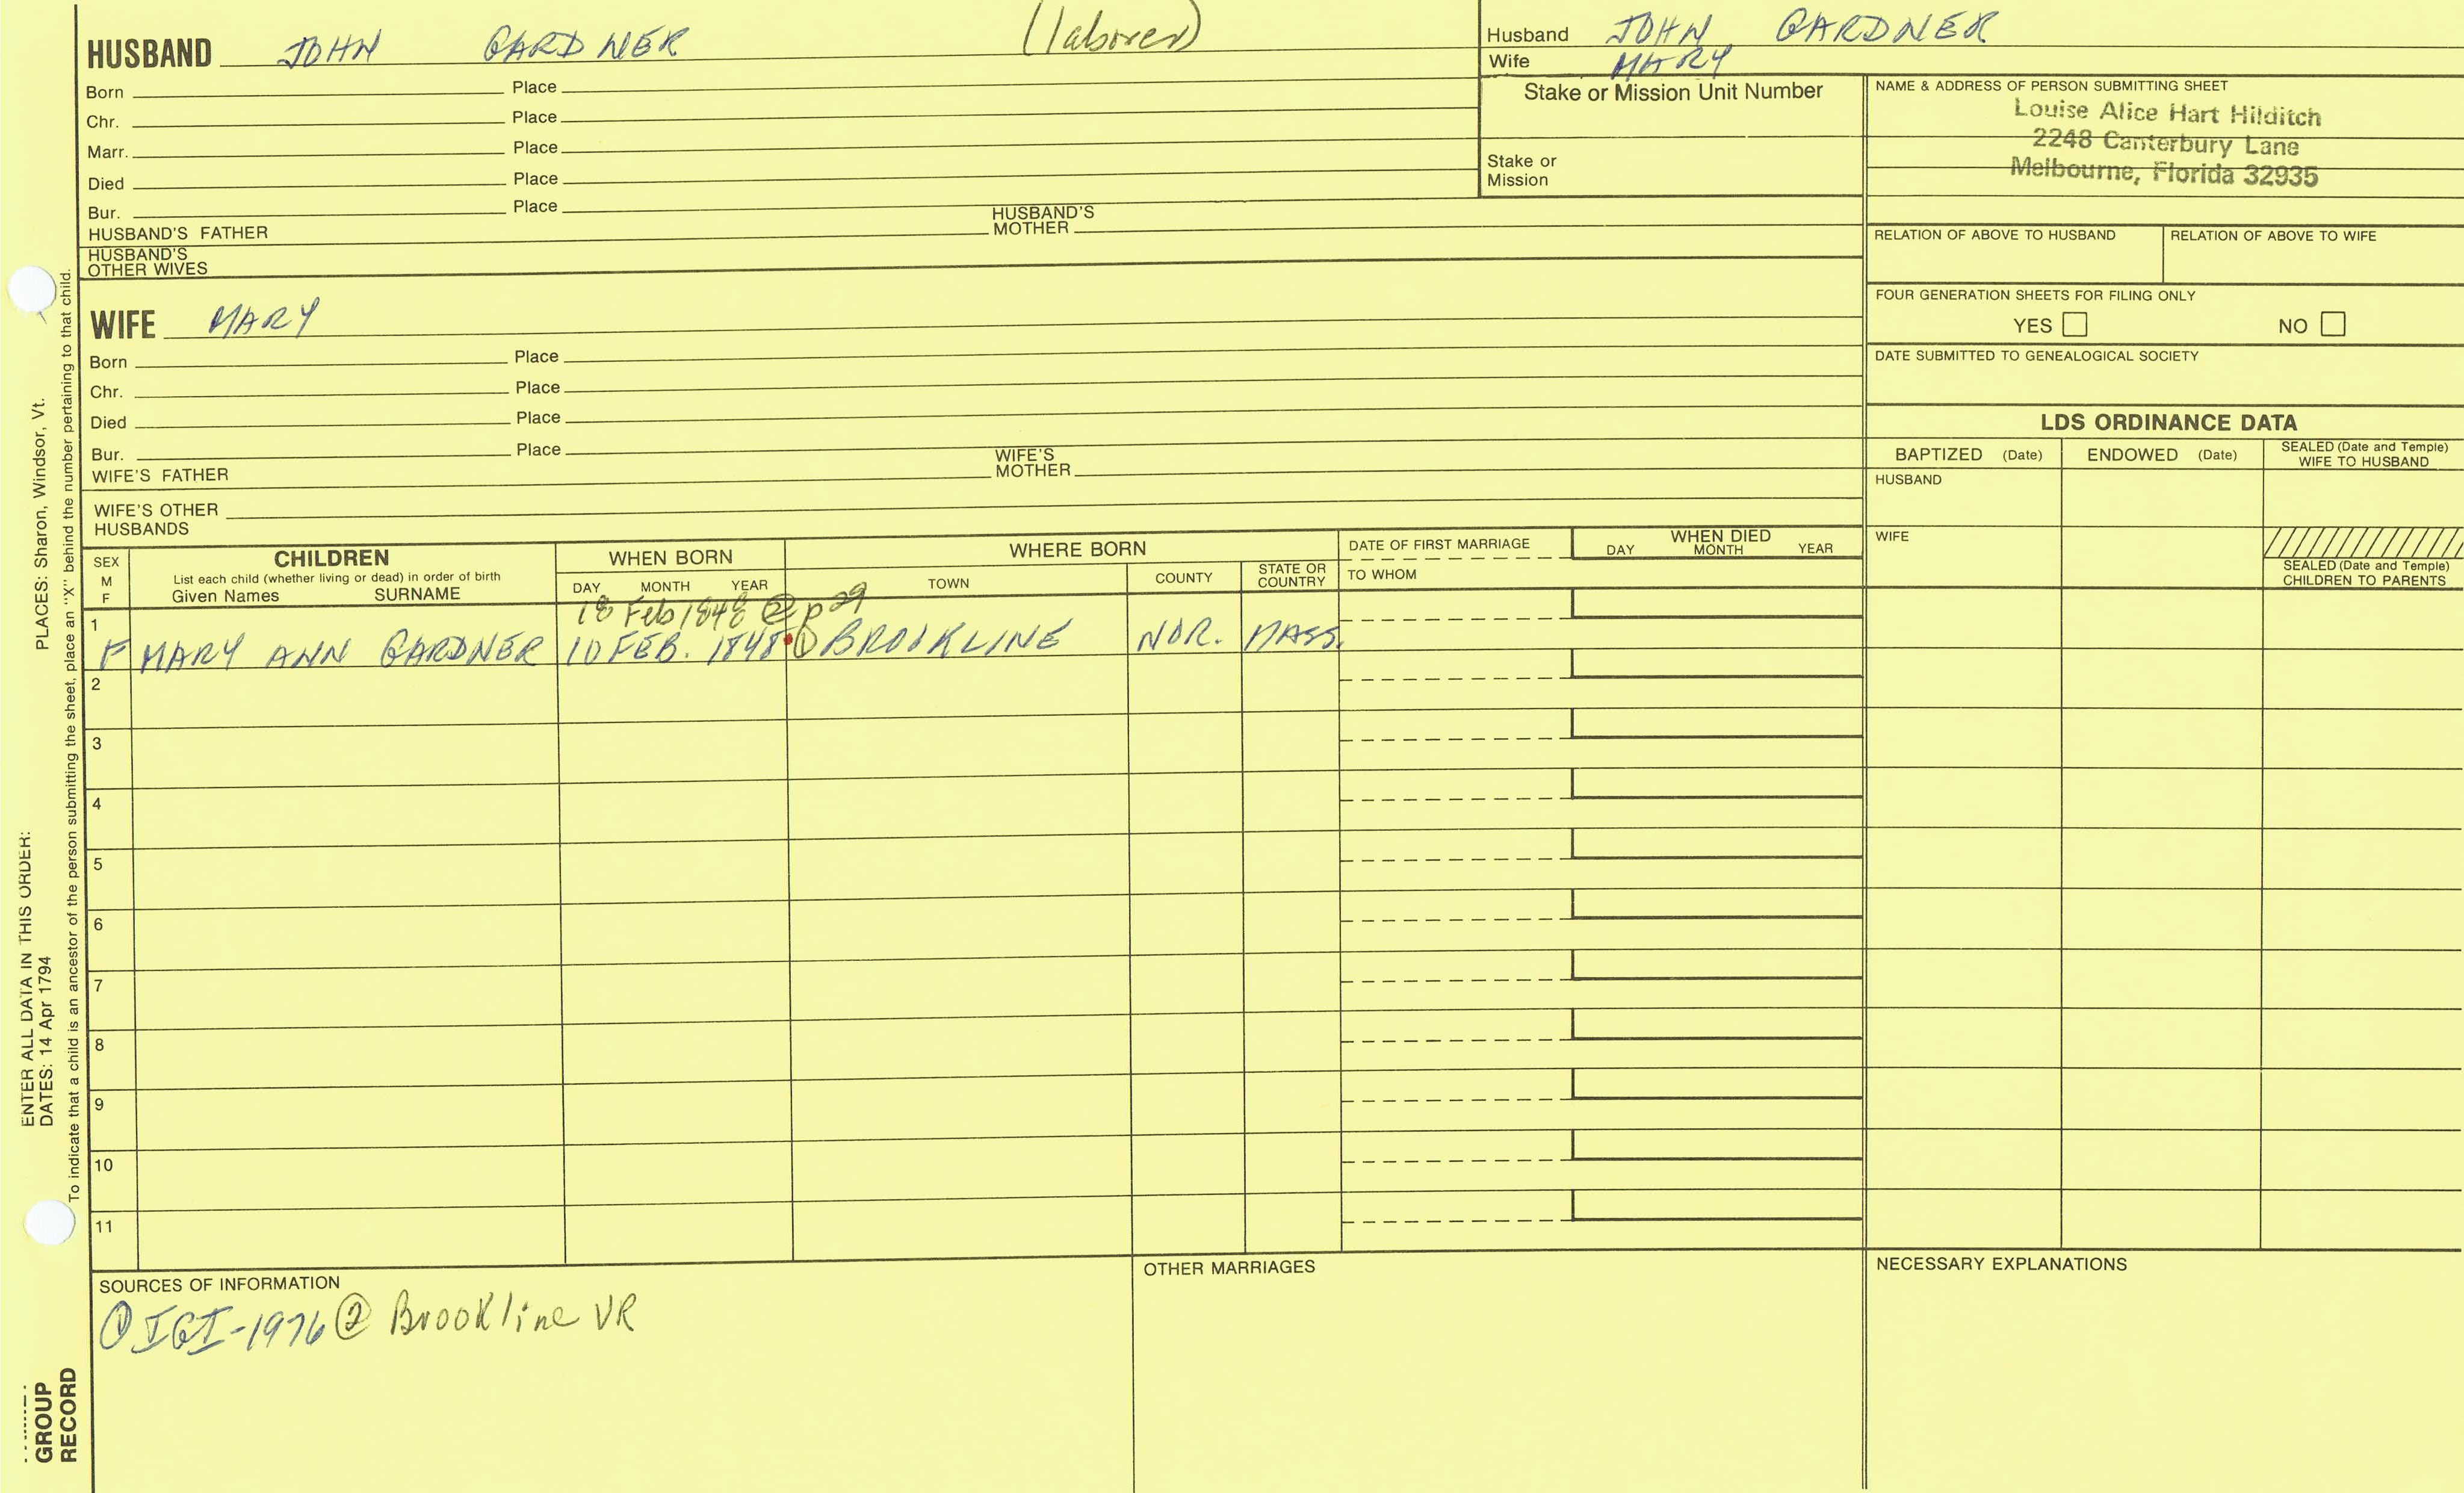 HUSBAND JOHN GARDNER (laborer)
Born Place
Chr. Place
Marr. Place
Died Place
Bur. Place
HUSBAND'S FATHER HUSBAND'S MOTHER
HUSBAND'S OTHER WIVES
Husband JOHN GARDNER
Wife MARY
Stake or Mission Unit Number
Stake or Mission
NAME & ADDRESS OF PERSON SUBMITTING SHEET
Louise Alice Hart Hilditch
2248 Canterbury Lane
Melbourne, Florida 32935
RELATION OF ABOVE TO HUSBAND RELATION OF ABOVE TO WIFE
FOUR GENERATION SHEETS FOR FILING ONLY
YES NO
DATE SUBMITTED TO GENEALOGICAL SOCIETY
WIFE MARY
Born Place
Chr. Place
Died Place
Bur. Place
WIFE'S FATHER WIFE'S MOTHER
WIFE'S OTHER HUSBANDS
LDS ORDINANCE DATA
BAPTIZED (Date) ENDOWED (Date) SEALED (Date and Temple) WIFE TO HUSBAND
HUSBAND
WIFE
SEALED (Date and Temple) CHILDREN TO PARENTS
SEX M F
CHILDREN
List each child (whether living or dead) in order of birth
Given Names SURNAME
WHEN BORN
DAY MONTH YEAR
WHERE BORN
TOWN COUNTY STATE OR COUNTRY
DATE OF FIRST MARRIAGE
TO WHOM
WHEN DIED
DAY MONTH YEAR
18 Feb 1848 ② p 29
1 F MARY ANN GARDNER 10 FEB. 1848 ① BROOKLINE NOR. MASS.
2
3
4
5
6
7
8
9
10
11
SOURCES OF INFORMATION
① IGI-1976 ② Brookline VR
OTHER MARRIAGES
NECESSARY EXPLANATIONS
ENTER ALL DATA IN THIS ORDER:
DATES: 14 Apr 1794 PLACES: Sharon, Windsor, Vt.
To indicate that a child is an ancestor of the person submitting the sheet, place an "X" behind the number pertaining to that child.
GROUP
RECORD